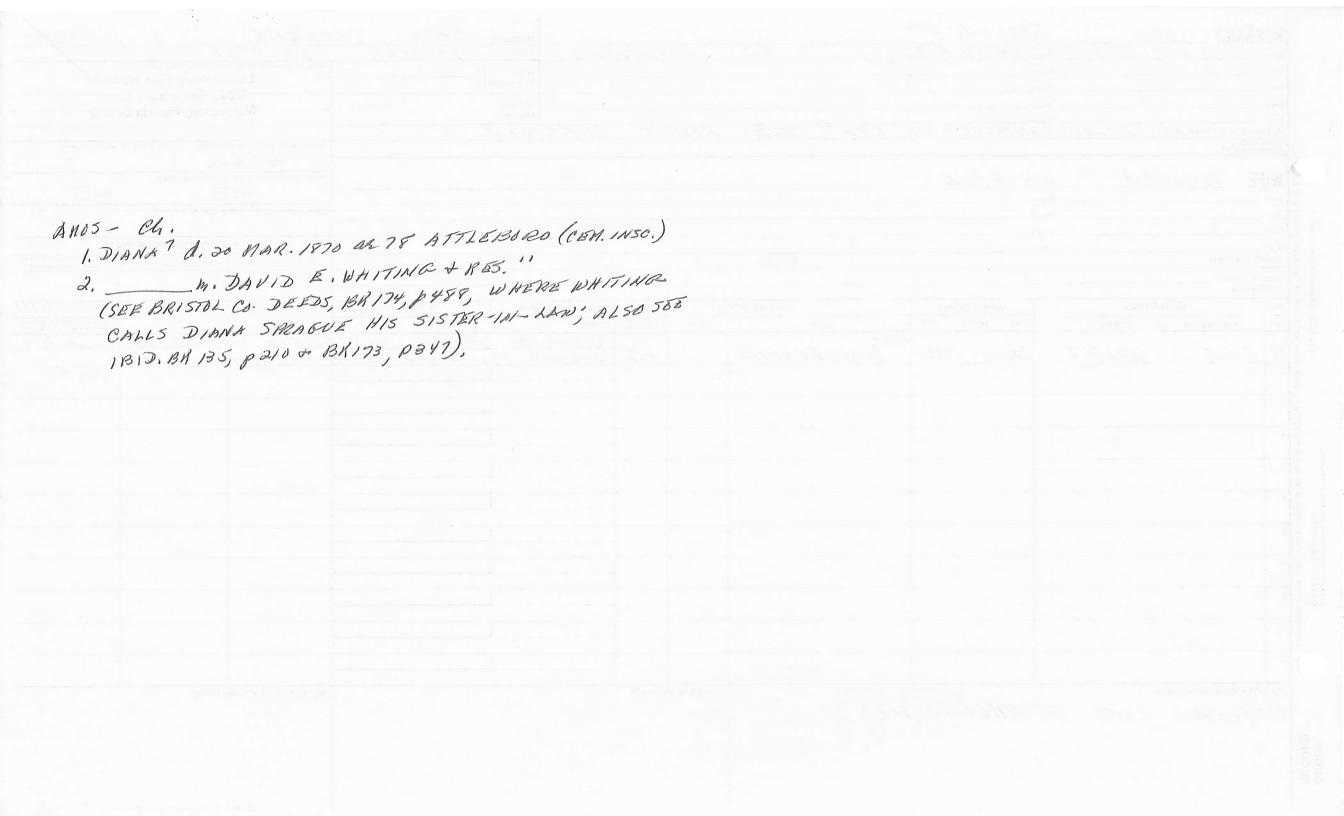 AMOS - Ch.
1. DIANA⁷ d. 20 MAR. 1870 ae 78 ATTLEBORO (CEM. INSC.)
2. ________ m. DAVID E. WHITING & RES. "
(SEE BRISTOL CO. DEEDS, BK 174, p 488, WHERE WHITING
CALLS DIANA SPRAGUE HIS SISTER-IN-LAW; ALSO SEE
IBID. BK 135, p 210 & BK 173, p 347).